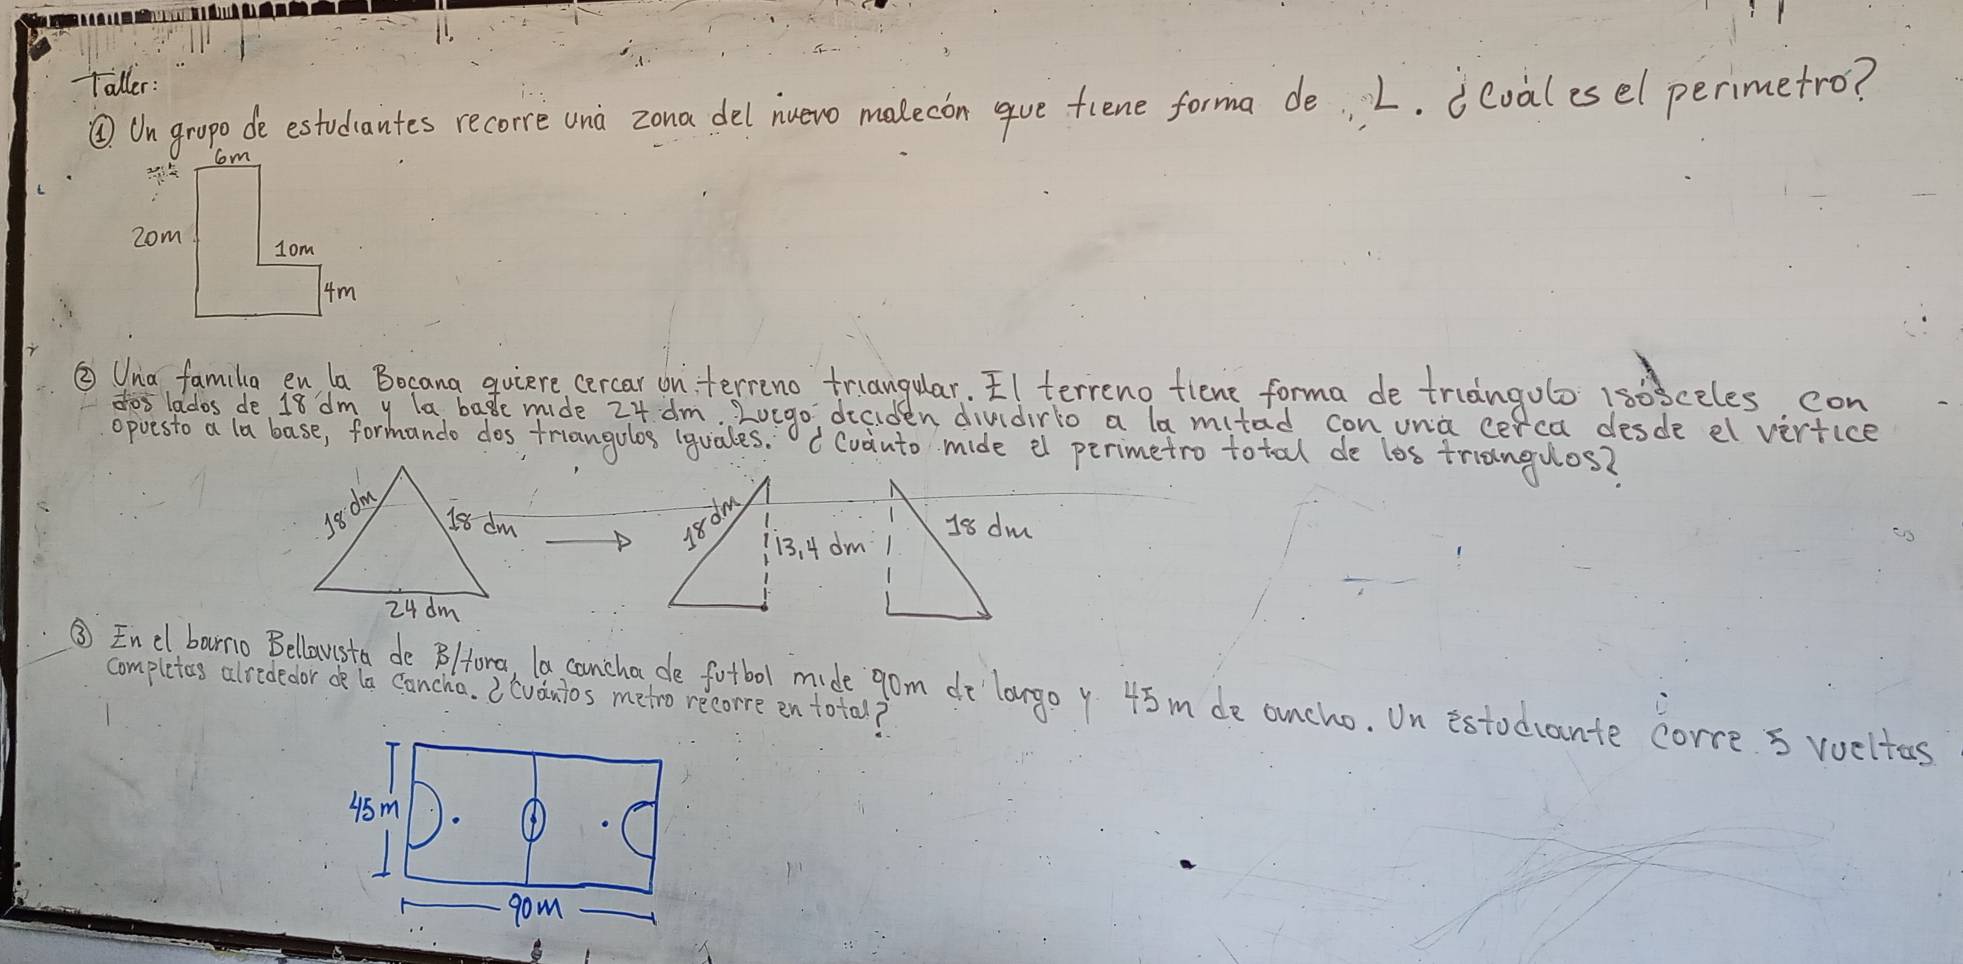 Taller:
① Un grupo de estudiantes recorre una zona del nuevo malecón que tiene forma de L. ¿Cuál es el perimetro?
6m
20m
10m
4m
② Una familia en la Bocana quiere cercar un terreno triangular. El terreno tiene forma de triángulo isósceles con
dos lados de 18 dm y la base mide 24 dm. Luego, deciden dividirlo a la mitad con una cerca desde el vértice
opuesto a la base, formando dos triangulos iguales. ¿Cuánto mide el perimetro total de los triángulos?
18 dm
18 dm
24 dm
18 dm
13,4 dm
18 dm
③ En el barrio Bellavista de B/tura, la cancha de futbol mide 90m de largo y 45m de ancho. Un estudiante corre 5 vueltas
completas alrededor de la cancha. ¿Cuántos metro recorre en total?
45m
90m